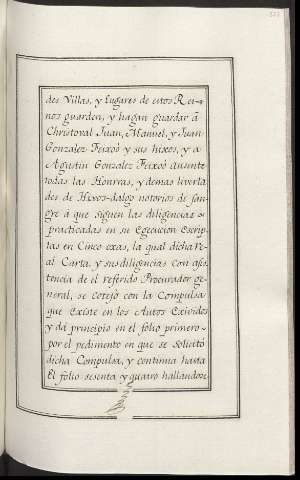 des Villas, y Lugares de estos Rei-
nos guarden, y hagan guardar â
Christoval Juan, Manuel, y Juan
Gonzalez Feixoô y sus hixos, y a
Agustin Gonzalez Feixoô ausente
todas las Honrras, y demas liverta
des de Hixos-dalgo notorios de san-
gre â que siguen las diligencias
practicadas en su Egecucion Escrip-
tas en Cinco oxas, la qual dicha Re-
al Carta, y sus diligencias con asis
tencia de el referido Procurador ge-
neral, se cotejó con la Compulsa
que Existe en los Autos Exividos
y dá principio en el folio primero
por el pedimento en que se solicitó
dicha Compulsa, y continua hasta
El folio sesenta y quatro hallandose